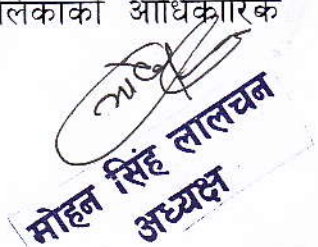 आधिकारिक
मोहन सिंह लालचन
अध्यक्ष